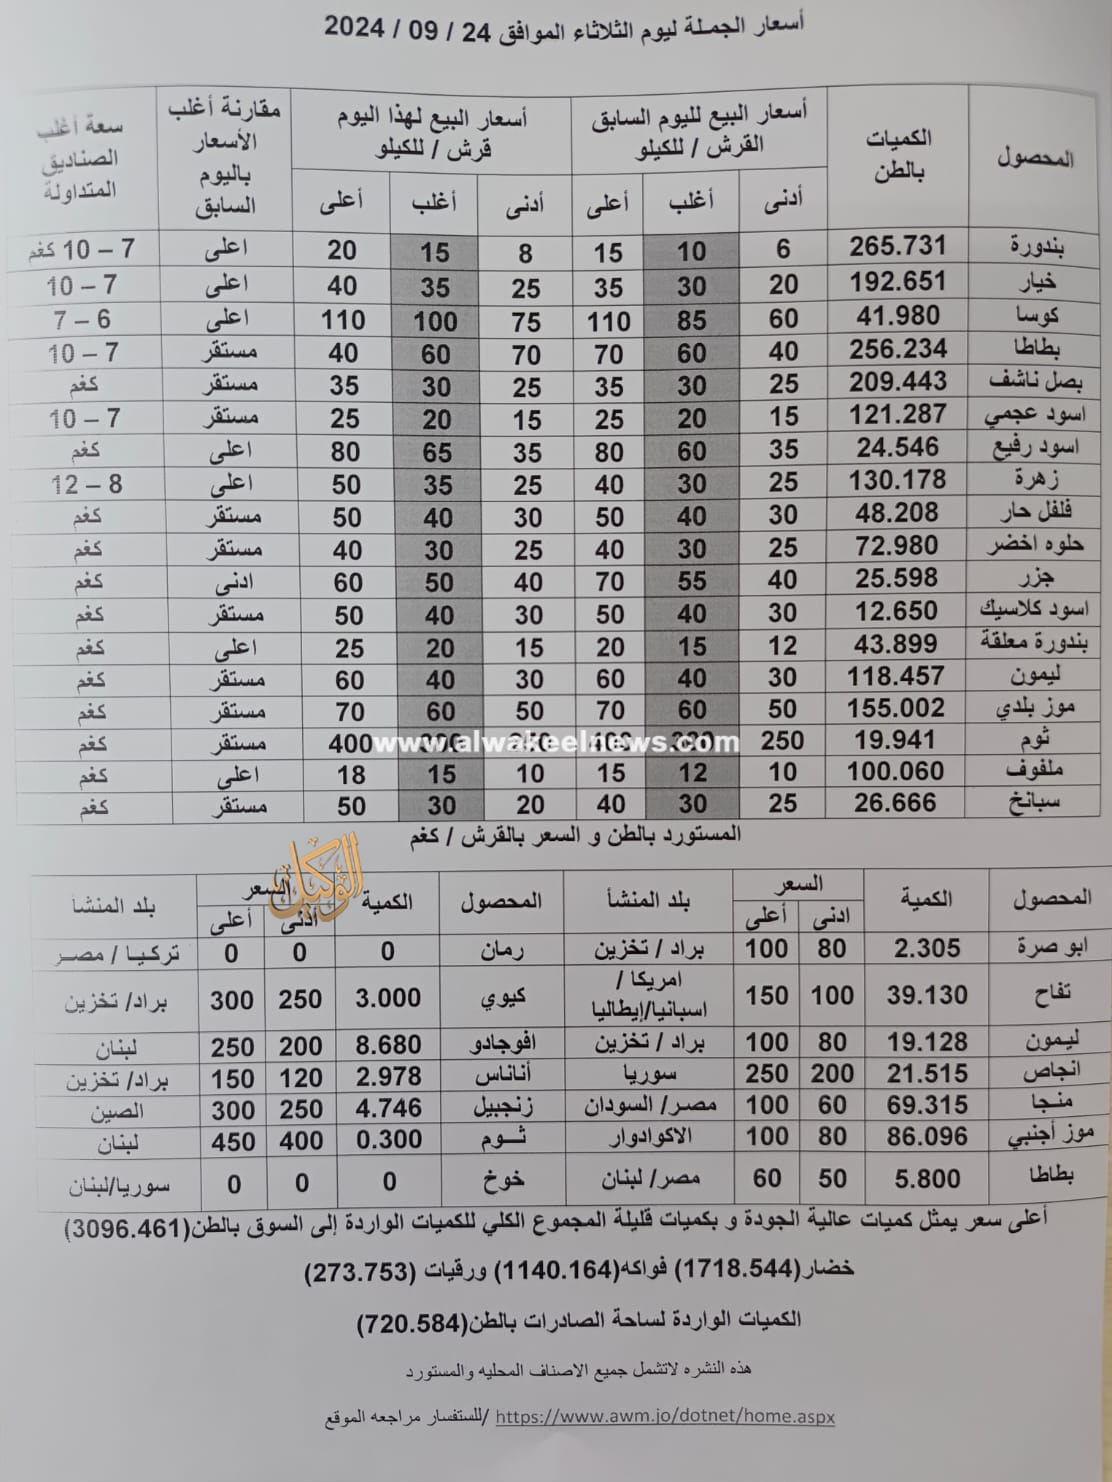 أسعار الجملة ليوم الثلاثاء الموافق 24 / 09 / 2024
المحصول الكميات بالطن أسعار البيع لليوم السابق القرش / للكيلو أسعار البيع لهذا اليوم قرش / للكيلو مقارنة أغلب الأسعار باليوم السابق سعة أغلب الصناديق المتداولة
أدنى أغلب أعلى أدنى أغلب أعلى
بندورة 265.731 6 10 15 8 15 20 اعلى 7 – 10 كغم
خيار 192.651 20 30 35 25 35 40 اعلى 7 – 10
كوسا 41.980 60 85 110 75 100 110 اعلى 6 – 7
بطاطا 256.234 40 60 70 70 60 40 مستقر 7 – 10
بصل ناشف 209.443 25 30 35 25 30 35 مستقر كغم
اسود عجمي 121.287 15 20 25 15 20 25 مستقر 7 – 10
اسود رفيع 24.546 35 60 80 35 65 80 اعلى كغم
زهرة 130.178 25 30 40 25 35 50 اعلى 8 – 12
فلفل حار 48.208 30 40 50 30 40 50 مستقر كغم
حلوه اخضر 72.980 25 30 40 25 30 40 مستقر كغم
جزر 25.598 40 55 70 40 50 60 ادنى كغم
اسود كلاسيك 12.650 30 40 50 30 40 50 مستقر كغم
بندورة معلقة 43.899 12 15 20 15 20 25 اعلى كغم
ليمون 118.457 30 40 60 30 40 60 مستقر كغم
موز بلدي 155.002 50 60 70 50 60 70 مستقر كغم
ثوم 19.941 250 400 مستقر كغم
www.alwakeelnews.com
ملفوف 100.060 10 12 15 10 15 18 اعلى كغم
سبانخ 26.666 25 30 40 20 30 50 مستقر كغم
المستورد بالطن و السعر بالقرش / كغم
الوكيل
المحصول الكمية السعر بلد المنشأ المحصول الكمية السعر بلد المنشأ
ادنى أعلى ادنى أعلى
ابو صرة 2.305 80 100 براد / تخزين رمان 0 0 0 تركيا / مصر
تفاح 39.130 100 150 امريكا / اسبانيا/إيطاليا كيوي 3.000 250 300 براد/ تخزين
ليمون 19.128 80 100 براد / تخزين افوجادو 8.680 200 250 لبنان
انجاص 21.515 200 250 سوريا أناناس 2.978 120 150 براد/ تخزين
منجا 69.315 60 100 مصر/ السودان زنجبيل 4.746 250 300 الصين
موز أجنبي 86.096 80 100 الاكوادوار ثوم 0.300 400 450 لبنان
بطاطا 5.800 50 60 مصر/ لبنان خوخ 0 0 0 سوريا/لبنان
أعلى سعر يمثل كميات عالية الجودة و بكميات قليلة المجموع الكلي للكميات الواردة إلى السوق بالطن(3096.461)
خضار(1718.544) فواكه(1140.164) ورقيات (273.753)
الكميات الواردة لساحة الصادرات بالطن(720.584)
هذه النشره لاتشمل جميع الاصناف المحليه والمستورد
للستفسار مراجعه الموقع/ https://www.awm.jo/dotnet/home.aspx